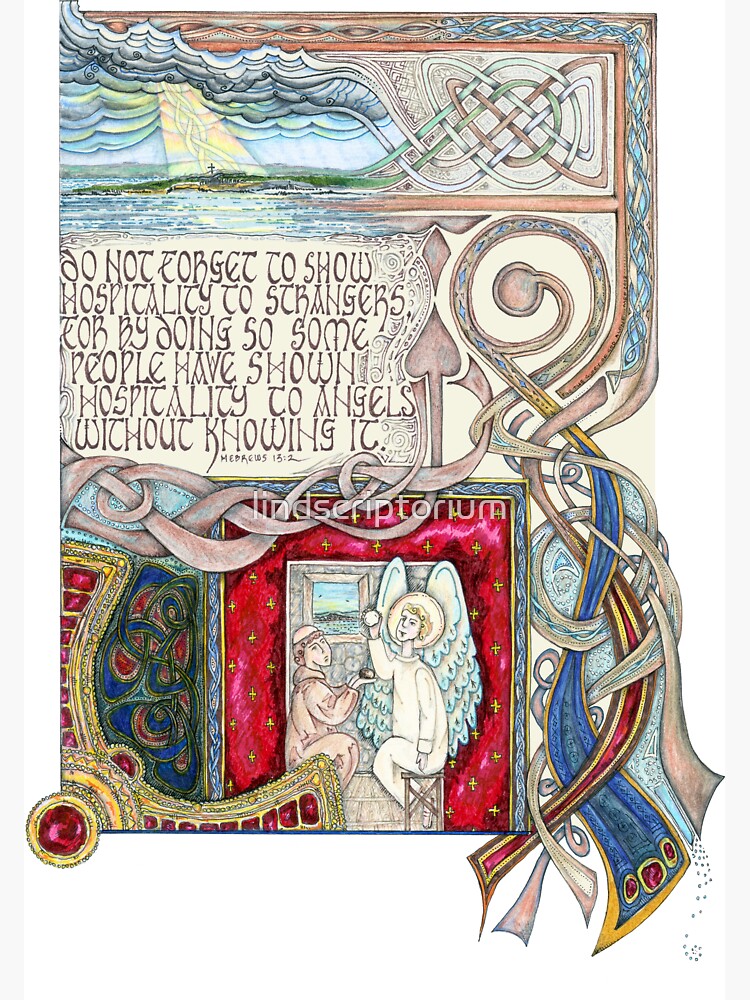 DO NOT FORGET TO SHOW
HOSPITALITY TO STRANGERS,
FOR BY DOING SO SOME
PEOPLE HAVE SHOWN
HOSPITALITY TO ANGELS
WITHOUT KNOWING IT.
HEBREWS 13:2
lindscriptorium